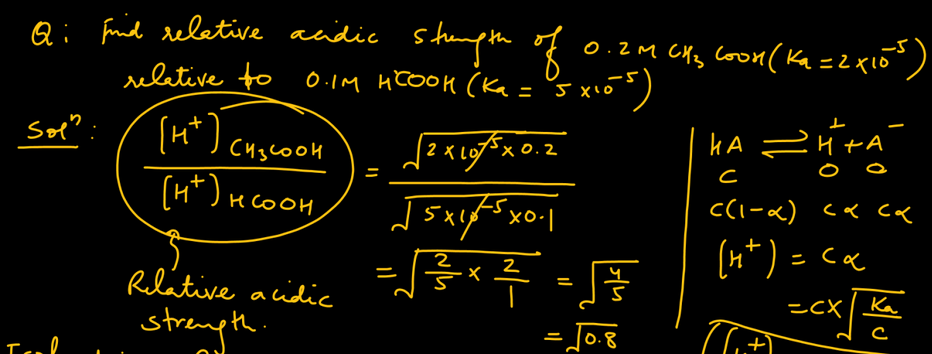 Q: Find relative acidic strength of 0.2M CH₃COOH (Ka = 2×10⁻⁵)
relative to 0.1M HCOOH (Ka = 5×10⁻⁵)
Solⁿ: [H⁺]CH₃COOH / [H⁺]HCOOH = √(2×10⁻⁵×0.2) / √(5×10⁻⁵×0.1)
= √(2/5 × 2/1) = √(4/5)
= √0.8
Relative acidic
strength.
HA ⇌ H⁺ + A⁻
C 0 0
C(1-α) Cα Cα
[H⁺] = Cα
= C× √(Ka/C)